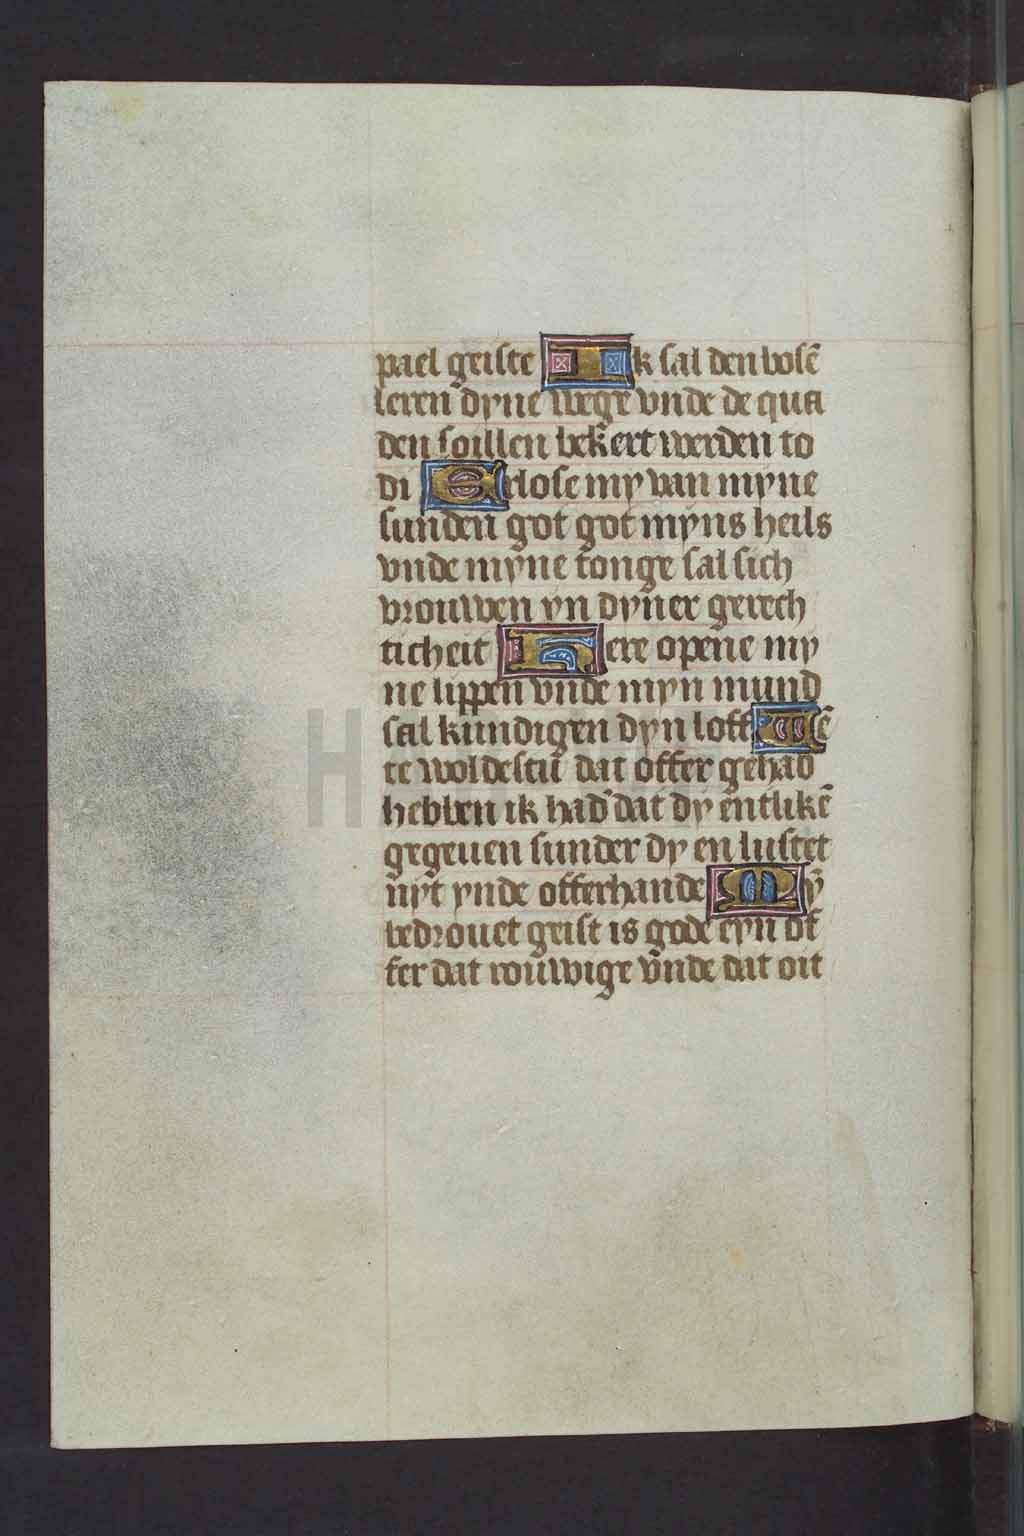 pael geiste Ik sal den bosē
leren dyne wege vnde de qua
den soillen bekert werden to
di Erlose my van myne
sunden got got myns heils
vnde myne tonge sal sich
vrouwen yn dyner gerech
ticheit Here opene my
ne lippen vnde myn mund
sal kundigen dyn loff Wē
te woldestu dat offer gehad
hebben ik had dat dy entlikē
gegeuen sunder dy en lustet
nyt ynde offerhande Mẏ
bedrouet geist is gode eyn of
fer dat rouwige vnde dat oit